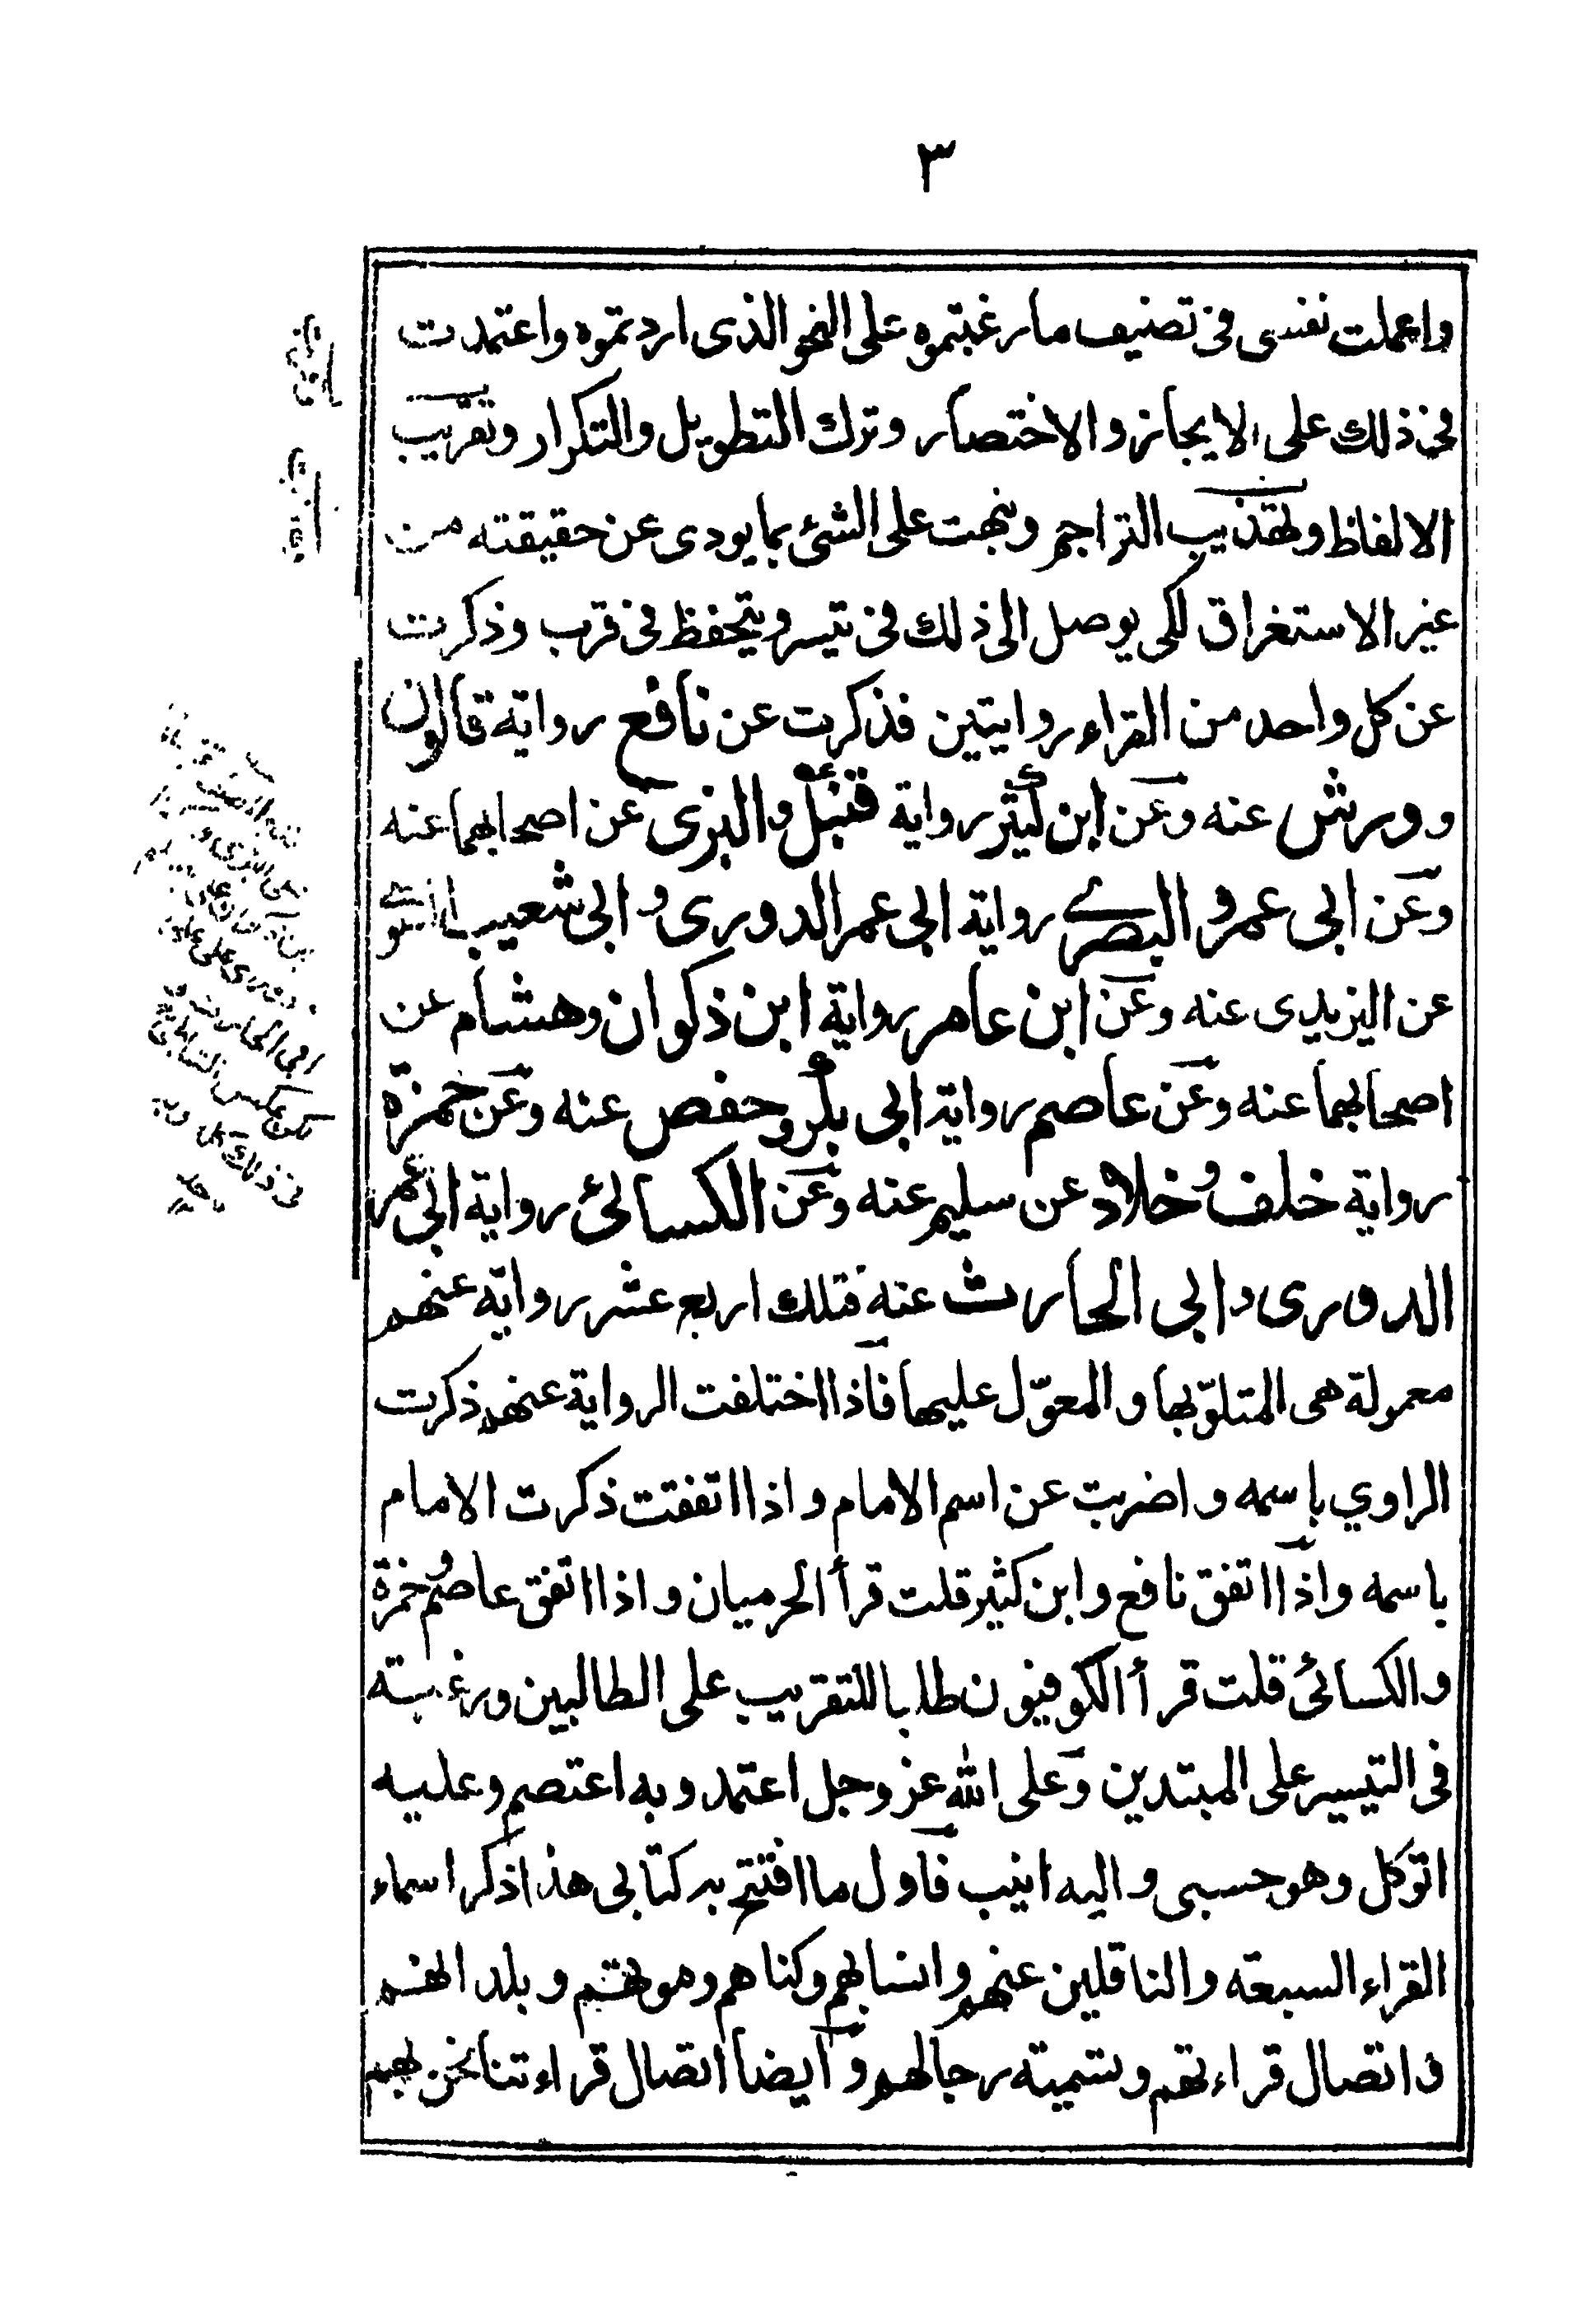 ٣
واعملت نفسى فى تصنيف ما رغبتموه على النحو الذى اردتموه واعتمدت
فى ذلك على الايجاز والاختصار وترك التطويل والتكرار وتقريب
الالفاظ وتهذيب التراجم ونبهت على الشئ بما يودى عن حقيقته من
غير الاستغراق لكى يوصل الى ذلك فى تيسر ويتحفظ فى قرب وذكرت
عن كل واحد من القراء روايتين فذكرت عن نافع رواية قالون
وورش عنه وعن ابن كثير رواية قنبل والبزى عن اصحابهما عنه
وعن ابى عمرو البصرے رواية ابى عمر الدورى و ابى شعيب السوسے
عن اليزيدى عنه وعن ابن عامر رواية ابن ذكوان وهشام عن
اصحابهما عنه وعن عاصم رواية ابى بكر وحفص عنه وعن حمزة
رواية خلف و خلاد عن سليم عنه وعن الكسائى رواية ابى عمر
الدورى و ابى الحارث عنه فتلك اربع عشر رواية عنهم
معمولة هى المتلوّ بها والمعوّل عليها فاذا اختلفت الرواية عنهم ذكرت
الراوي باسمه واضربت عن اسم الامام واذا اتفقت ذكرت الامام
باسمه واذا اتفق نافع وابن كثير قلت قرأ الحرميان واذا اتفق عاصم و حمزة
والكسائى قلت قرأ الكوفيون طلبا للتقريب على الطالبين ورغبة
فى التيسير على المبتدين وعلى الله عز وجل اعتمد وبه اعتصم وعليه
اتوكل وهو حسبى واليه انيب فاول ما افتتح به كتابى هذا ذكر اسماء
القراء السبعة والناقلين عنهم وانسابهم وكناهم وموتهم وبلدانهم
واتصال قراءتهم وتسمية رجالهم وايضا اتصال قراءتنا نحن بهم